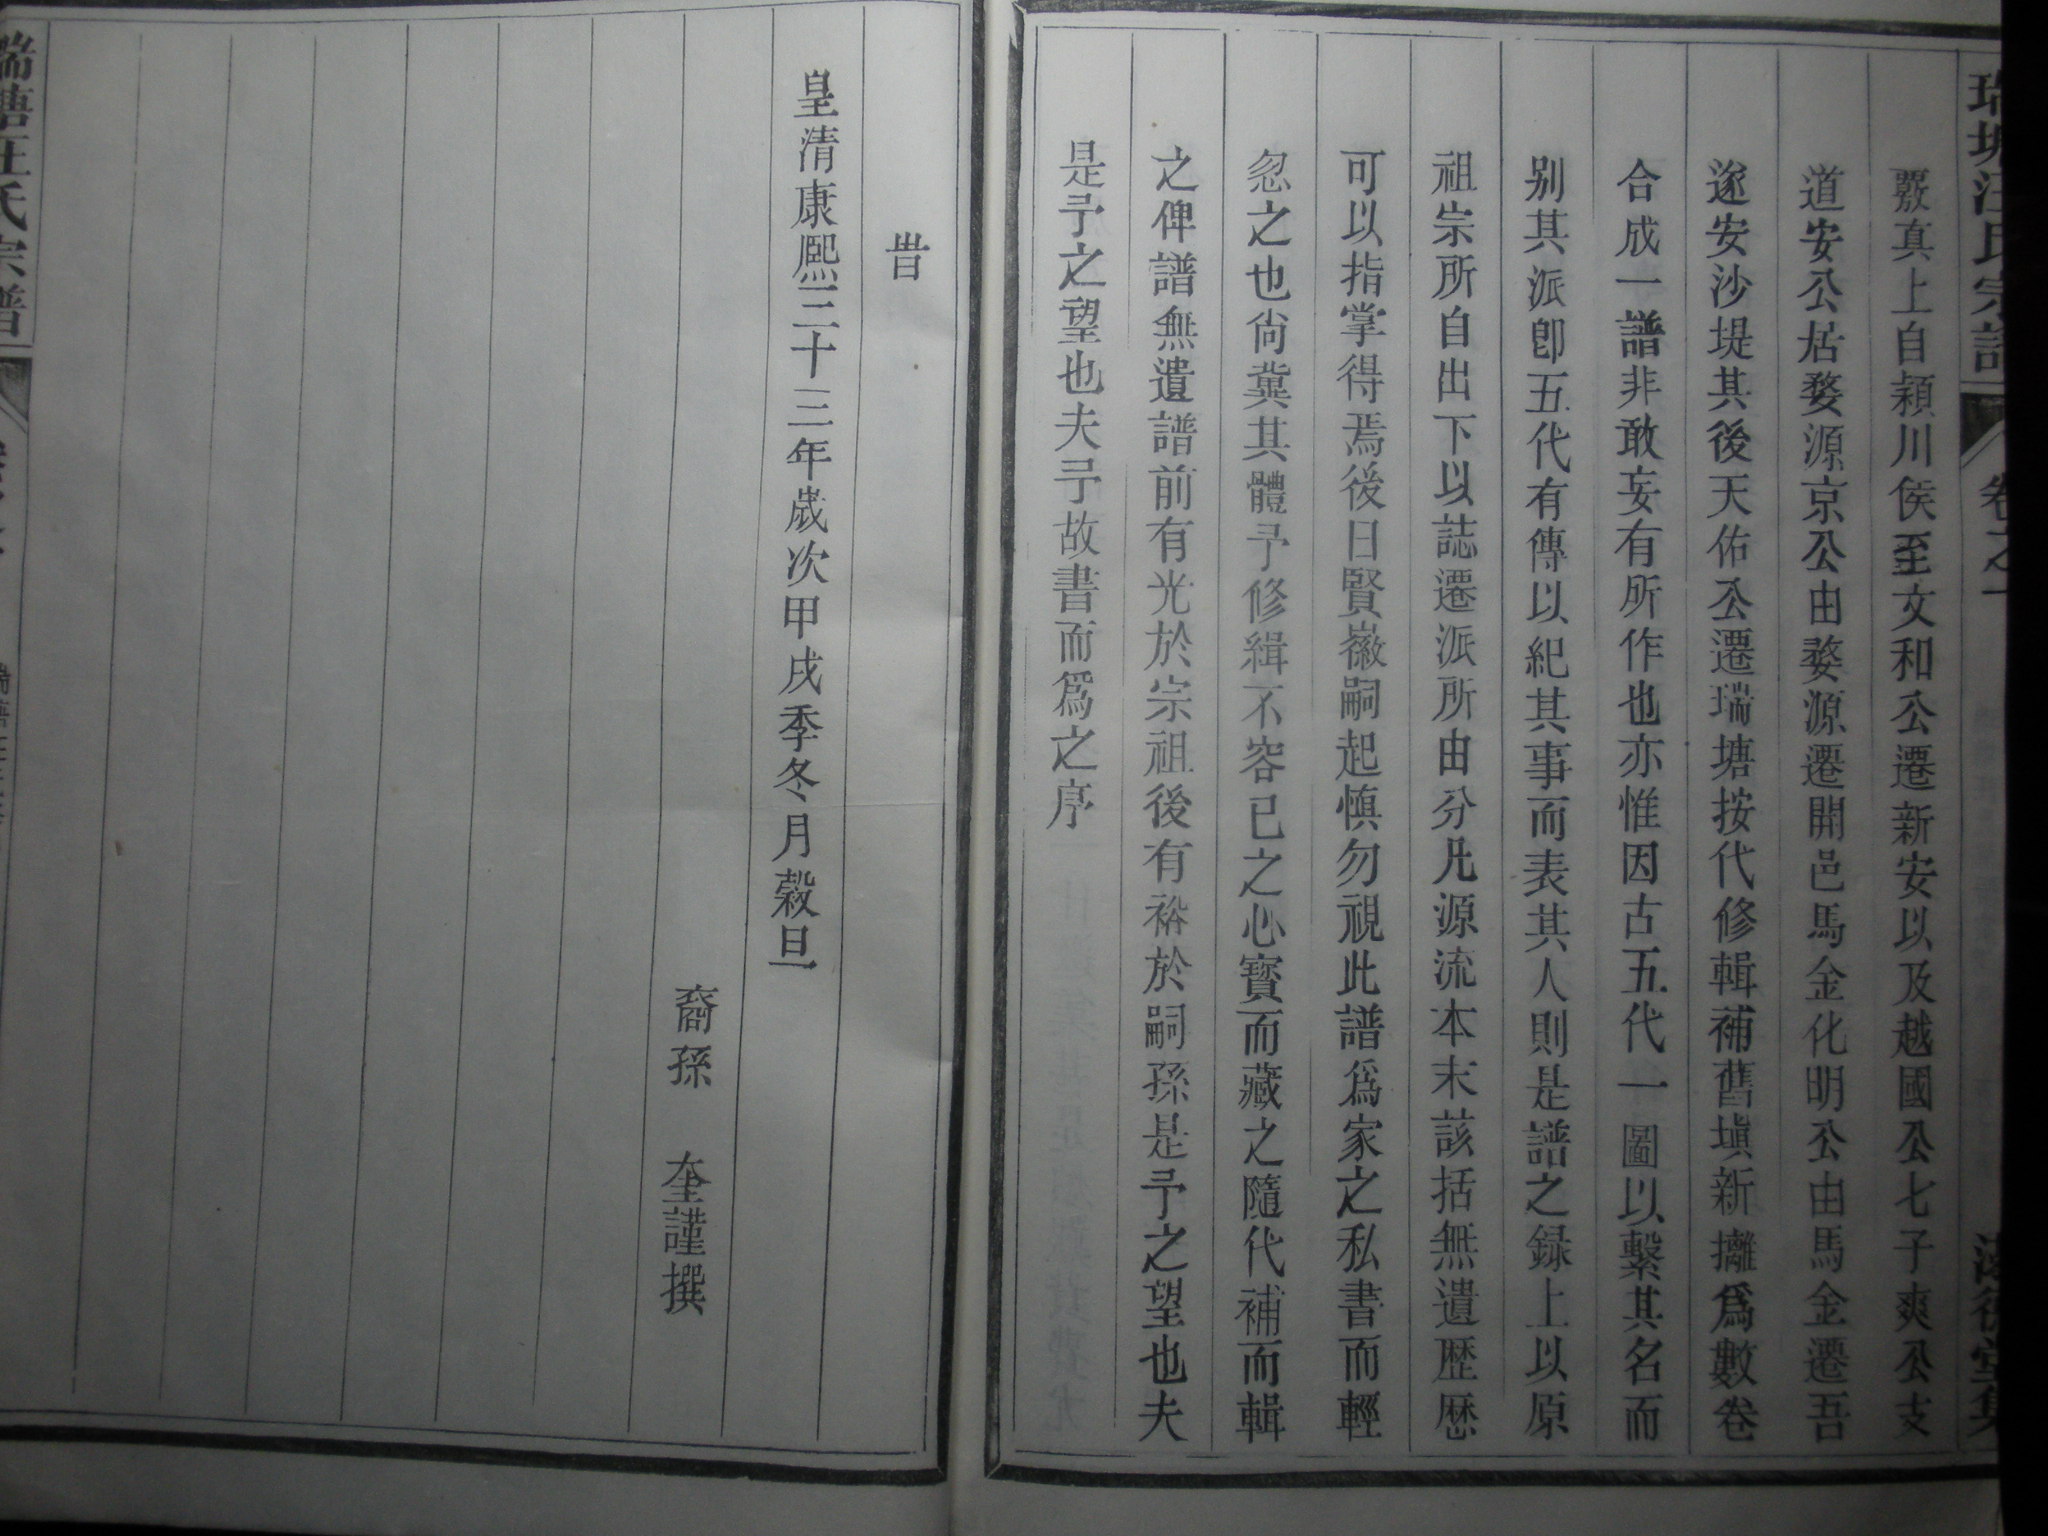 瑞塘汪氏宗譜 卷之一
覈真上自潁川侯至文和公遷新安以及越國公七子爽公支
道安公居婺源京公由婺源遷開邑馬金化明公由馬金遷吾
遂安沙堤其後天佑公遷瑞塘按代修輯補舊塡新攡爲數卷
合成一譜非敢妄有所作也亦惟因古五代一圖以繫其名而
别其派卽五代有傳以紀其事而表其人則是譜之録上以原
祖宗所自出下以誌遷派所由分凡源流本末該括無遺歴歴
可以指掌得焉後日賢嶶嗣起慎勿視此譜爲家之私書而輕
忽之也尙冀其體予修緝不容已之心寳而藏之隨代補而輯
之俾譜無遺譜前有光於宗祖後有裕於嗣孫是予之望也夫
是予之望也夫予故書而爲之序
旹
皇清康熙三十三年歲次甲戌季冬月穀旦
裔孫 奎謹撰
瑞塘汪氏宗譜